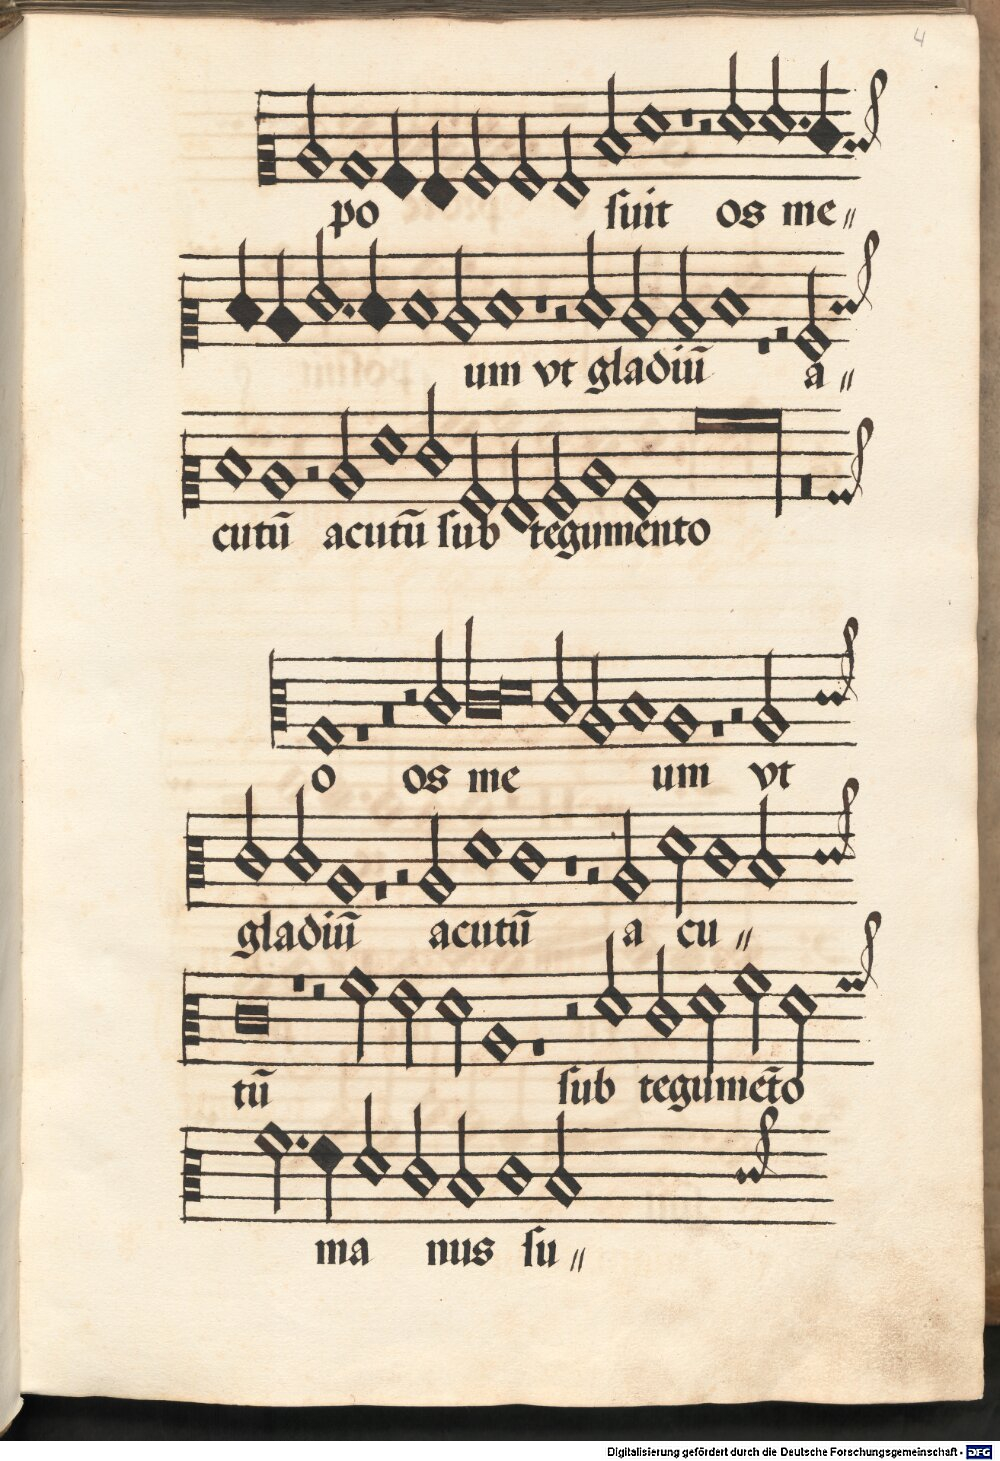 4
po suit os me〃
um vt gladiū a〃
cutū acutū sub tegumento
o os me um vt
gladiū acutū a cu〃
tū sub tegumēto
ma nus su〃
Digitalisierung gefördert durch die Deutsche Forschungsgemeinschaft - DFG